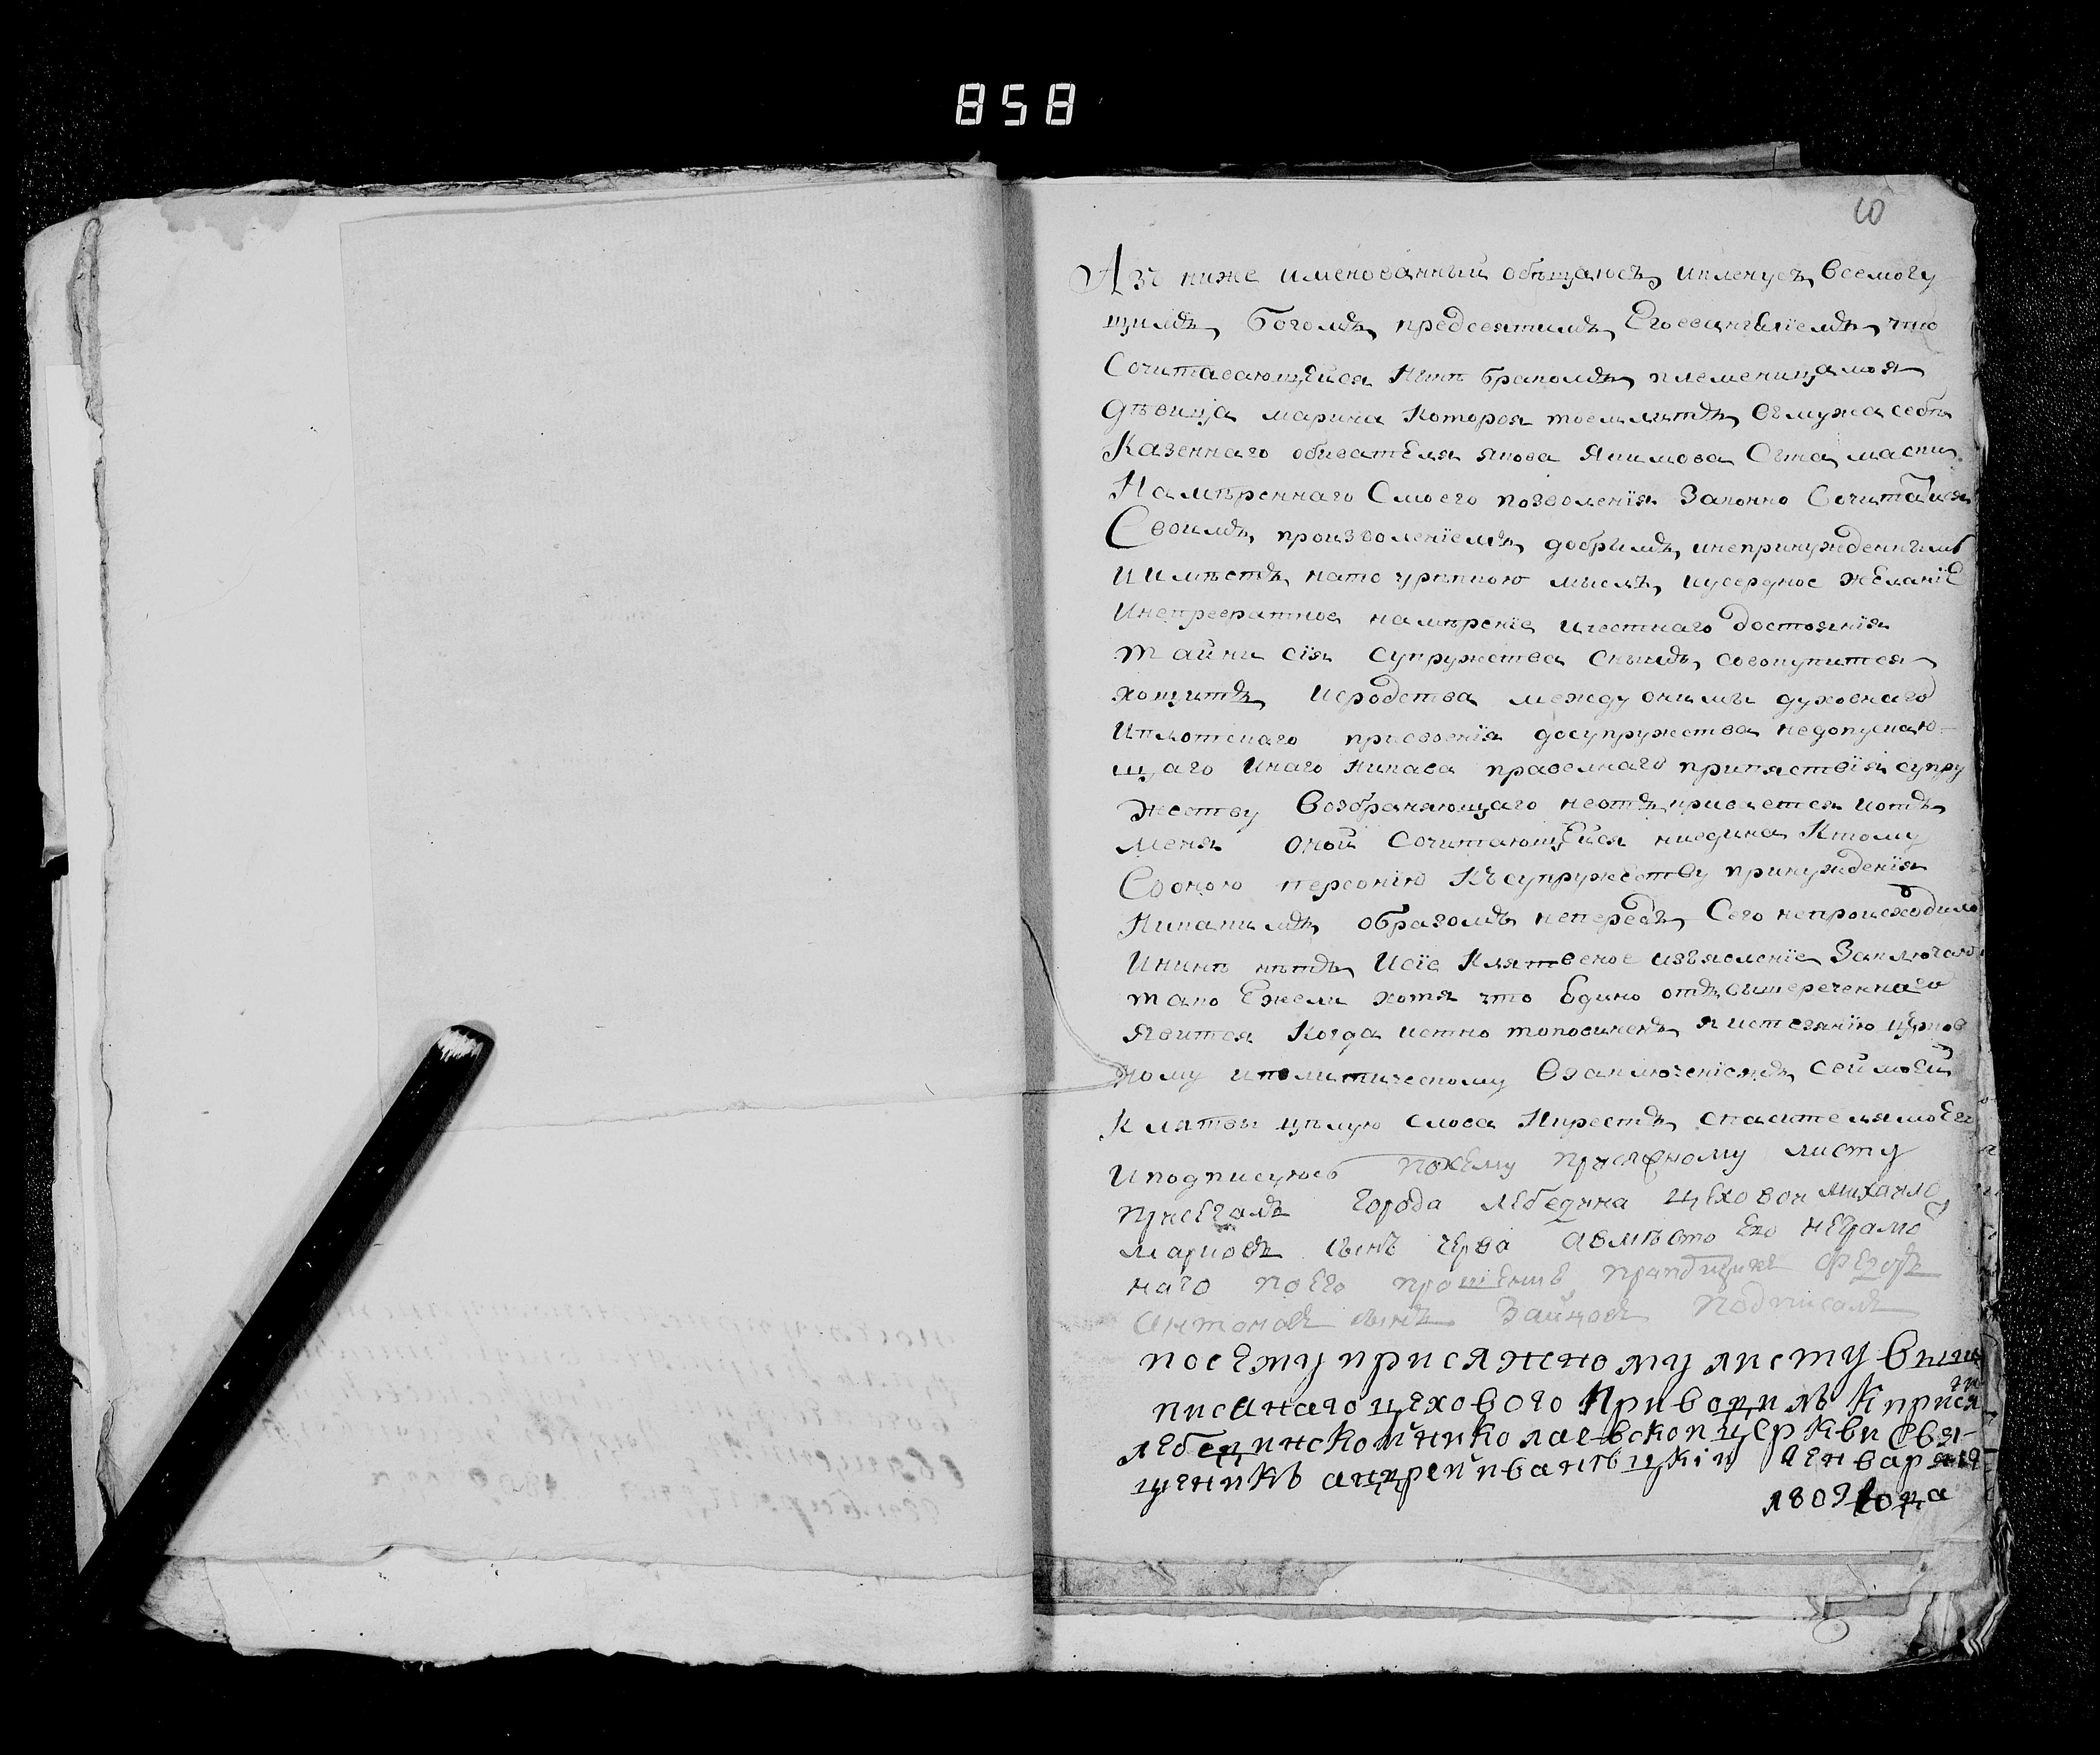 858
10
Азъ ниже именованный обѣщаюсъ, икленусъ, всемогу
щимъ, Богомъ, предсвятимъ, Егоевангелїемъ, что
Сочитавающейся Нынѣ бракомъ, племеницамоя
дѣвица марина Которая поемлитъ, въмужа себѣ
Казеннаго обиватЕля якова Якимова Сына
Намѣреннаго Смоего позволенїя Законно Сочитатися
Своимъ, произволенїемъ, добримъ, инепринужденнимъ
иимѣетъ, нато урѣпкою мислъ, иусердное жЕланїЕ
Инепревратное намѣренїе ичестнаго достоянїя
тайни сїя супружества снимъ, совокупится
хощитъ, исродства между онимъ духовнаго
Иплотскаго присвоенїя досупружества недопускаю-
щаго Инаго Никава правелнаго припяствїя супру
жеству Возбраняющаго неотъкриваетея иотъ
меня оной Сочитающейся ниедина Ктому
Соною персонїю Късупружеству принужденїя
Никакимъ, образомъ непередъ, Сего непроисходило
Ининѣ нѣтъ, Исїе Клятвеное изъясленїе Заключаю
тако Ежели хотя что Едино отъ вишереченнаго
Явится Когда истно топовиненъ, я истезанїю црков
ному иполитическому Взаключенїемъ, сей моЕй
Клятвы цѣлую слова Икрестъ, спасителямоЕго
Иподписуюсь покЕму присяжному листу
присЕгалъ города лЕбедина цЕховой михайло
марковъ синъ черва авмѣсто Его неграмо
наго поЕго прошению ФЕдоръ
Антоновъ синъ Зайцовъ подписалъ
посЕму присяжному листу Више
писанаго цехового Приводилъ Кприся
гѣ
лЕбединской николаевской цЕркви Свя-
щеникъ андрей иваницкїй Генваря 19
1809 года